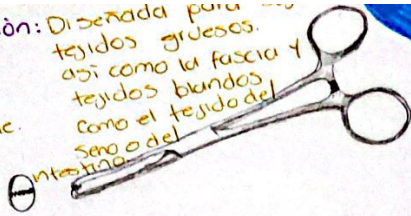 ón: Diseñada para
tejidos gruesos.
así como la fascia y
tejidos blandos
como el tejido del
seno o del
intestino